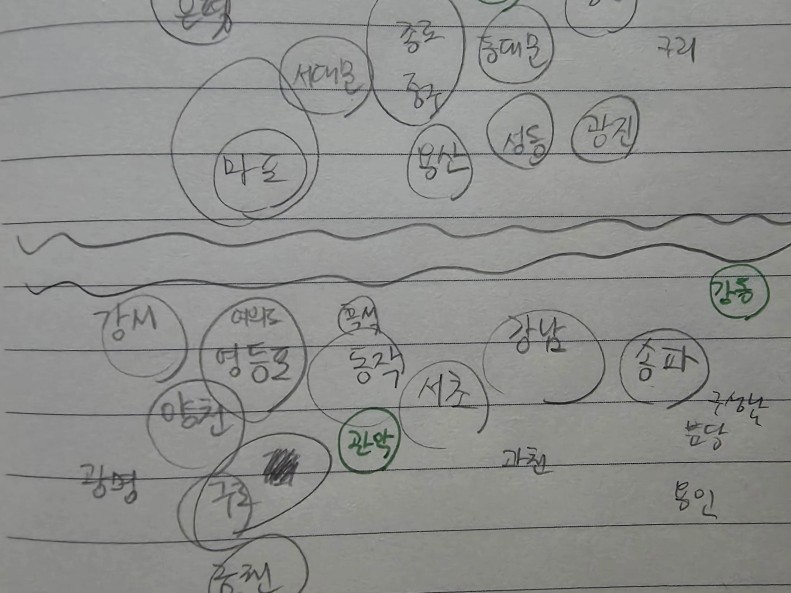 은평
종로
중구
서대문
동대문
구리
마포
용산
성동
광진
강동
강서
여의도
영등포
흑석
동작
서초
강남
송파
구성남
분당
양천
관악
과천
광명
구로
용인